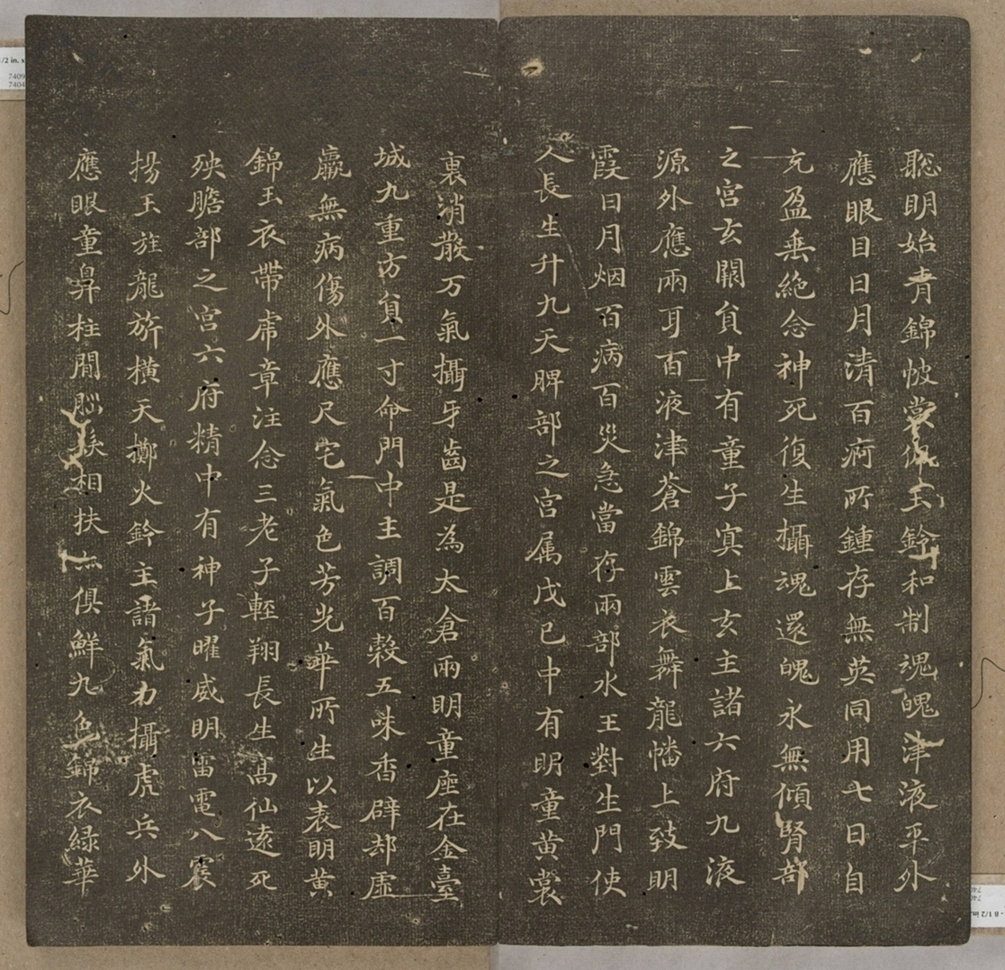 聡明始青錦帔裳佩玉鈴和制魂魄津液平外
應眼目日月清百痾所鍾存無英同用七日自
充盈垂絶念神死復生攝魂還魄永無傾腎部
之宮玄闕負中有童子寞上玄主諸六府九液
源外應兩耳百液津蒼錦雲衣舞龍幡上致明
霞日月烟百病百災急當存兩部水王對生門使
人長生升九天脾部之宮属戊己中有明童黄裳
裏消散万氣攝牙齒是為太倉兩明童座在金臺
城九重方負一寸命門中主調百穀五味香辟却虚
羸無病傷外應尺宅氣色芳光華所生以表明黄
錦玉衣帶虎章注念三老子輕翔長生高仙遠死
殃膽部之宮六府精中有神子曜威明雷電八震
揚玉旌龍旂横天擲火鈴主諸氣力攝虎兵外
應眼童鼻柱間腦髮相扶亦俱鮮九色錦衣緑華
1/2 in. x
7409
7404